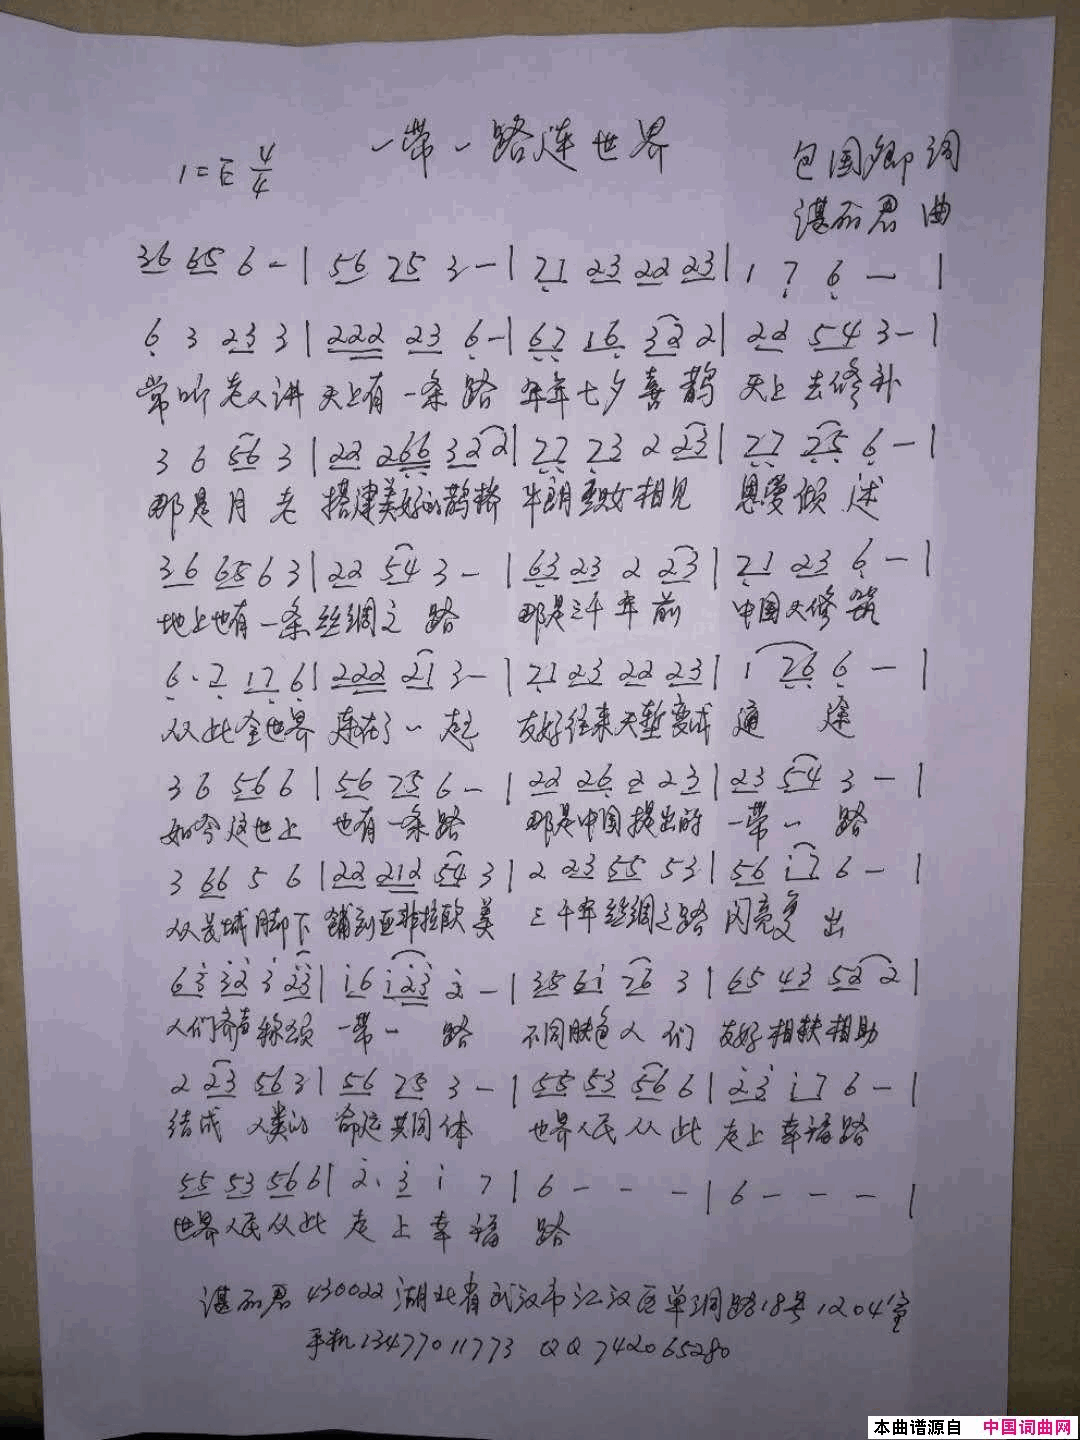 一带一路连世界
1=E 4/4
包国卿 词
谌丽君 曲
36 65 6 - | 56 25 3 - | 21 23 22 23 | 1 7 6 - |
6 3 23 3 | 222 23 6 - | 67 16 322 | 22 54 3 - |
常听老人讲 天上有一条路 年年七夕喜鹊 天上去修补
3 6 56 3 | 22 266 322 | 77 73 2 23 | 77 25 6 - |
那是月老 搭建美好的鹊桥 牛朗织女相见 恩爱倾述
36 656 3 | 22 54 3 - | 63 23 2 23 | 21 23 6 - |
地上也有一条丝绸之路 那是三千年前 中国人修筑
6·7 17 6 | 222 21 3 - | 21 23 22 23 | 1 76 6 - |
从此全世界 连在了一起 友好往来天堑变成通途
3 6 56 6 | 56 75 6 - | 22 26 2 23 | 23 54 3 - |
如今这世上 也有一条路 那是中国提出的 一带一路
3 66 5 6 | 22 212 54 3 | 2 23 55 53 | 56 i7 6 - |
从长城脚下 铺到亚非拉欧美 三千年丝绸之路 闪亮复出
63 32 3 23 | i6 i23 2 - | 35 6i 76 3 | 65 43 52 2 |
人们齐声称颂 一带一路 不同肤色人们 友好相扶相助
2 23 56 3 | 56 75 3 - | 55 53 56 6 | 23 i7 6 - |
结成人类的 命运共同体 世界人民从此 走上幸福路
55 53 56 6 | 2· 3 i 7 | 6 - - - | 6 - - - |
世界人民从此 走上幸福路
谌丽君 430022 湖北省武汉市江汉区单洞路18号1204室
手机13477011773 QQ 742065280
本曲谱源自 中国词曲网